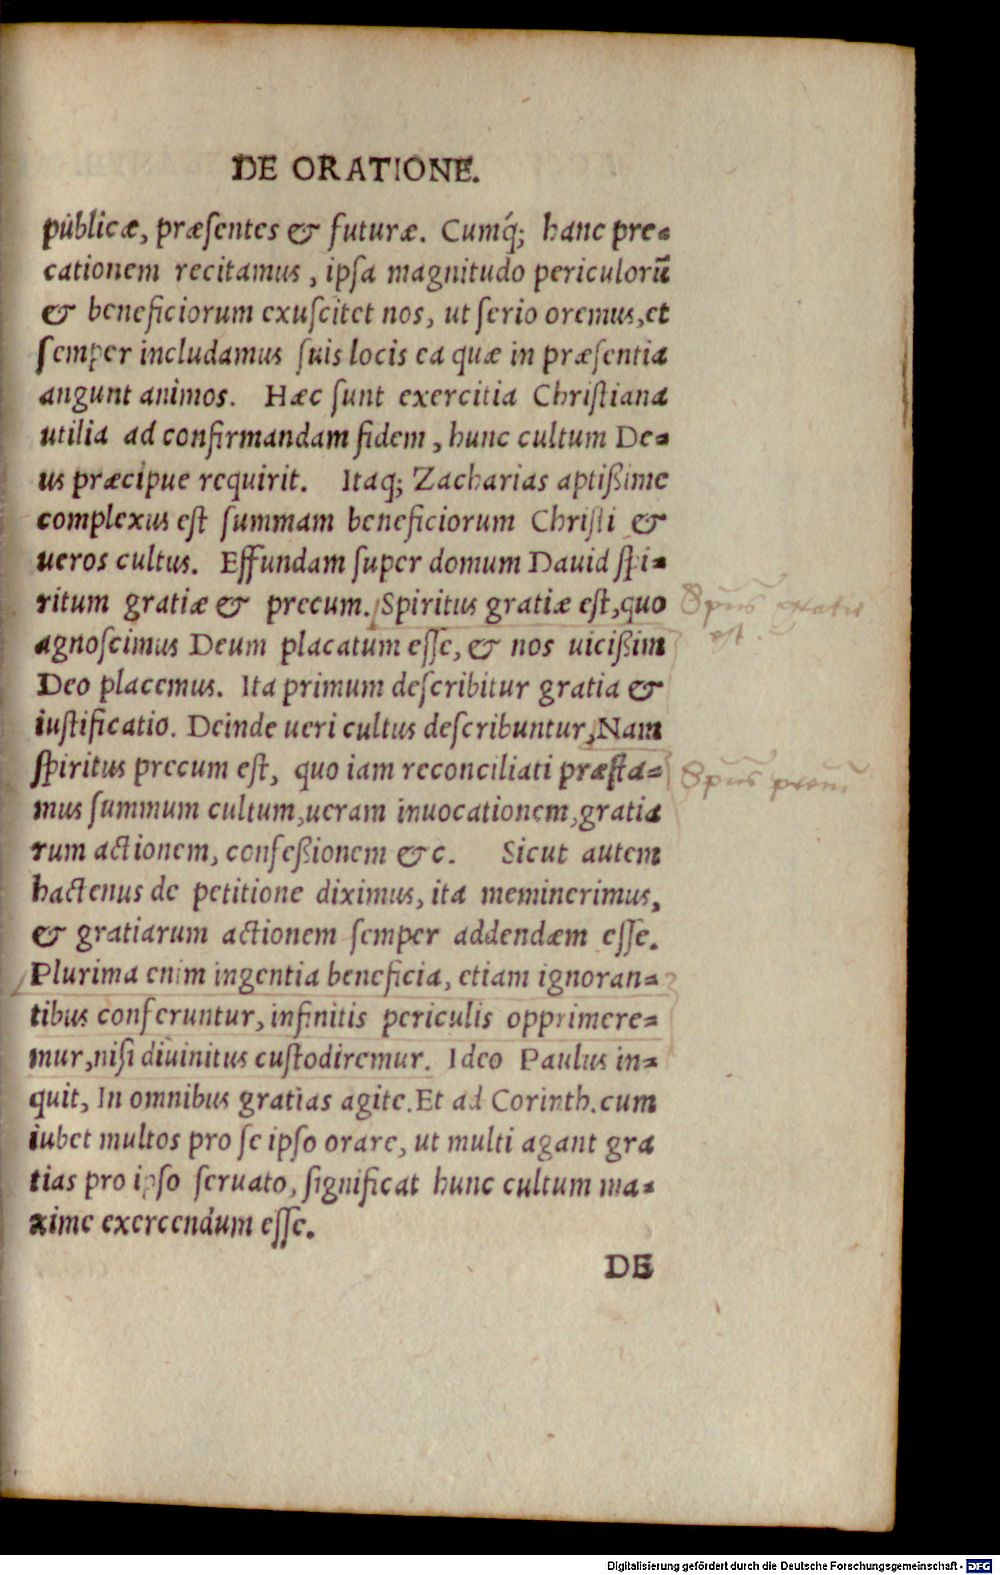 DE ORATIONE.
publicæ, præsentes & futuræ. Cumq́; hanc pre=
cationem recitamus, ipsa magnitudo periculorū
& beneficiorum exuscitet nos, ut serio oremus, et
semper includamus suis locis ea quæ in præsentia
angunt animos. Hæc sunt exercitia Christiana
utilia ad confirmandam fidem, hunc cultum De=
us præcipue requirit. Itaq; Zacharias aptißime
complexus est summam beneficiorum Christi &
ueros cultus. Effundam super domum Dauid spi=
ritum gratiæ & precum. Spiritus gratiæ est, quo
Spūs gratie
est.
agnoscimus Deum placatum esse, & nos uicißim
Deo placemus. Ita primum describitur gratia &
iustificatio. Deinde ueri cultus describuntur, Nam
spiritus precum est, quo iam reconciliati præsta=
Spūs precū
mus summum cultum, ueram inuocationem, gratia
rum actionem, confeßionem &c. Sicut autem
hactenus de petitione diximus, ita meminerimus,
& gratiarum actionem semper addendæm esse.
Plurima enim ingentia beneficia, etiam ignoran=
tibus conferuntur, infinitis periculis opprimere=
mur, nisi diuinitus custodiremur. Ideo Paulus in=
quit, In omnibus gratias agite. Et ad Corinth. cum
iubet multos pro se ipso orare, ut multi agant gra
tias pro ipso seruato, significat hunc cultum ma=
xime exercendum esse.
DE
Digitalisierung gefördert durch die Deutsche Forschungsgemeinschaft - DFG